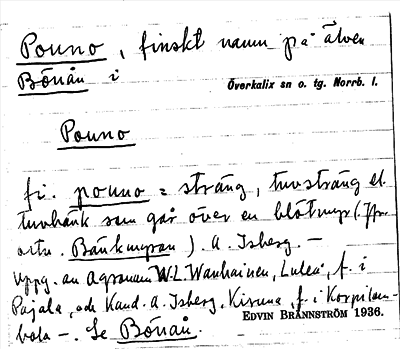 Pouno, finskt namn på älven
Bönån i
Överkalix sn o. tg. Norrb. l.
Pouno
fi. pouno = sträng, tuvsträng el.
tuvbänk som går över en blötmyr (. Jfr.
ortn. Bänkmyran). A. Isberg. —
Uppg. av Agronom W. L. Wanhainen, Luleå, f. i
Pajala, och Kand. A. Isberg, Kiruna, f. i Korpilom-
bolo —. Se Bönån.
EDVIN BRÄNNSTRÖM 1936.